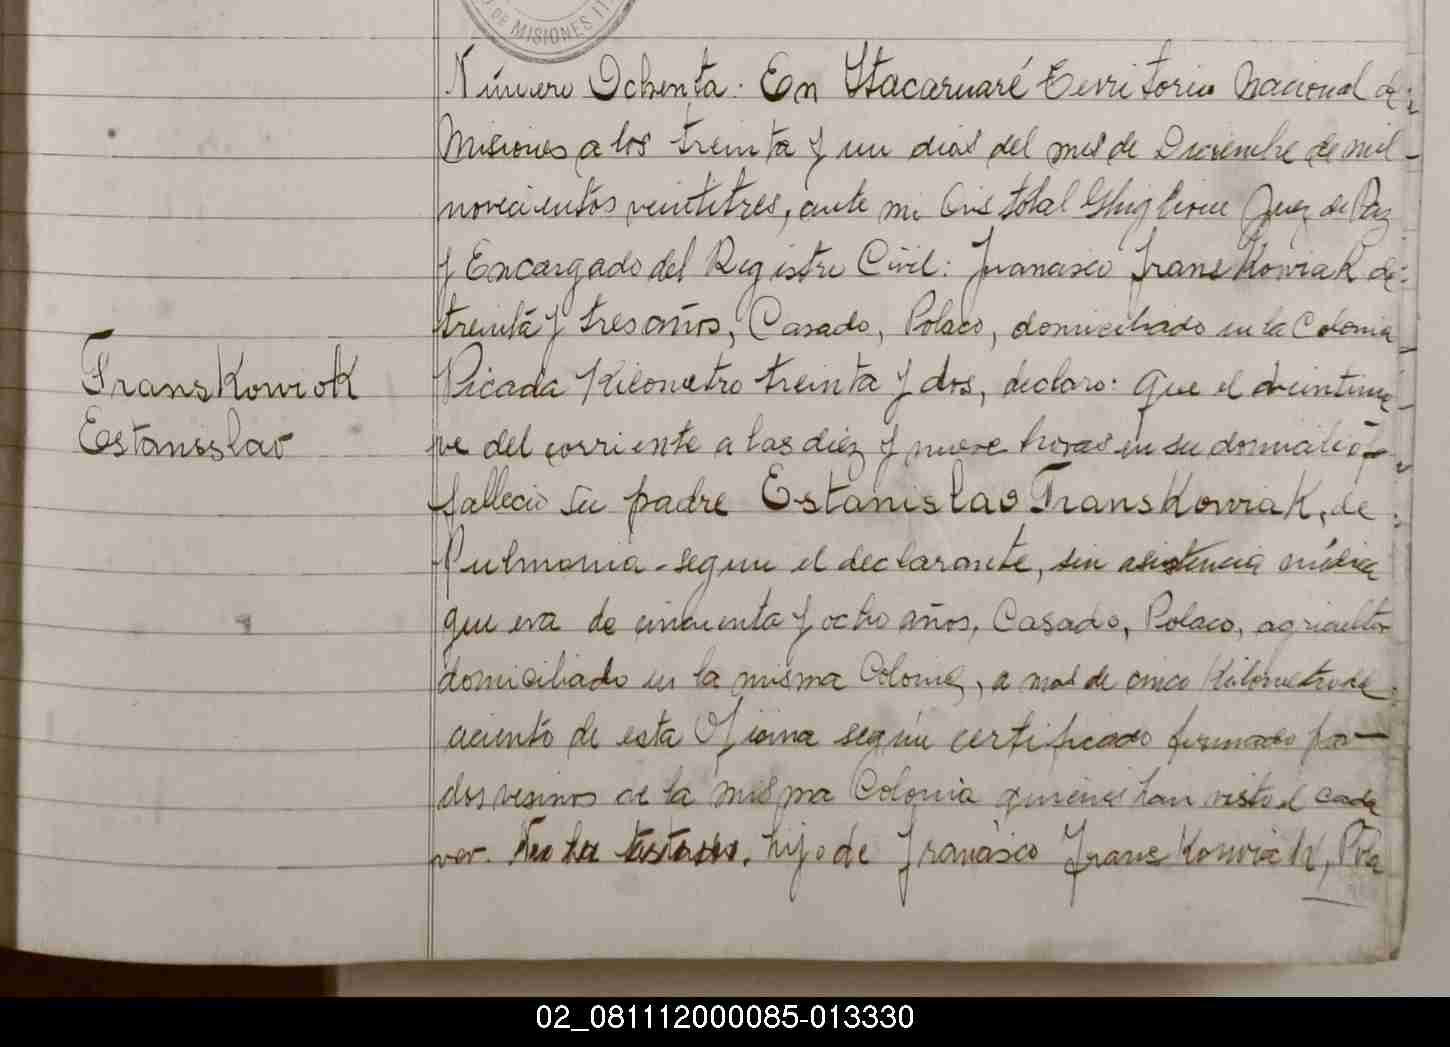 DE MISIONES
Número Ochenta. En Itacaruaré Territorio Nacional de
Misiones a los treinta y un dias del mes de Diciembre de mil
novecientos veintitres, ante mi Cristobal Ghiglione Juez de Paz
y Encargado del Registro Civil: Francisco Franskowiak de
treinta y tres años, Casado, Polaco, domiciliado en la Colonia
Franskowiok
Picada Kilometro treinta y dos, declaro: Que el veintinue
Estanislao
ve del corriente a las diez y nueve horas en su domicilio
fallecio su padre Estanislao Franskowiak, de
Pulmonia - segun el declarante, sin asistencia médica
que era de cincuenta y ocho años, Casado, Polaco, agricultor
domiciliado en la misma Colonia, a mas de cinco Kilometros de
aciento de esta Oficina según certificado firmado por
dos vesinos de la misma Colonia quienes han visto el cada
ver. No ha testado, hijo de Francisco Franskowiak, Pola
02_081112000085-013330